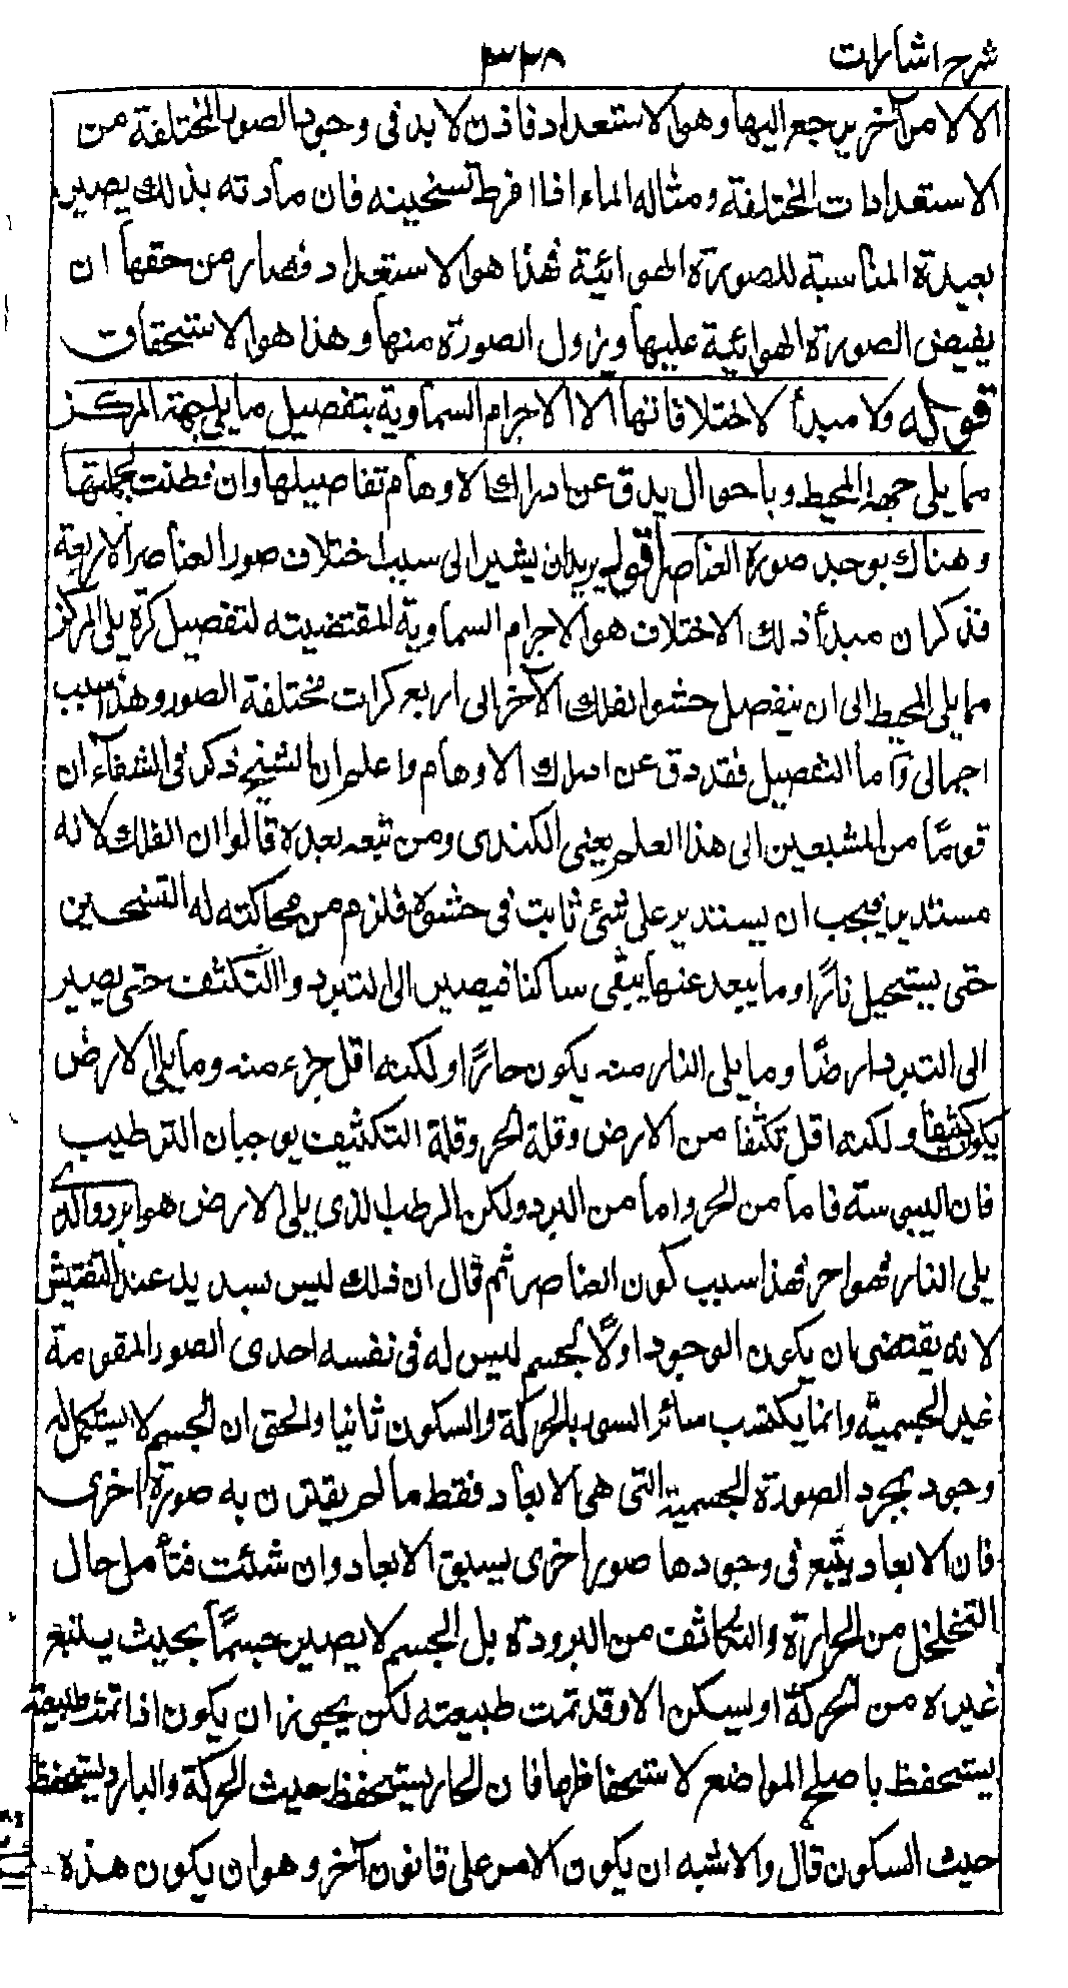 شرح اشارات ٣٣٨
الا لامر آخر يرجع اليها وهو الاستعداد فاذن لا بد فى وجود الصور المختلفة من
الاستعدادات المختلفة ومثاله الماء اذا افرط تسخينه فان مادته بذلك يصير
بعيدة المناسبة للصورة الهوائية فهذا هو الاستعداد فصار من حقها ان
يفيض الصورة الهوائية عليها ويزول الصورة منها وهذا هو الاستحقاق
قوله ولا مبدأ لاختلافاتها الا الاجرام السماوية بتفصيل ما يلى جهة المركز
مما يلى جهة المحيط وباحوال يدق عن ادراك الاوهام تفاصيلها وان فطنت لجملتها
وهناك يوجد صورة العناصر اقول يريد ان يشير الى سبب اختلاف صور العناصر الاربعة
فذكر ان مبدأ ذلك الاختلاف هو الاجرام السماوية المقتضيته لتفصيل كرة يلى المركز
مما يلى المحيط الى ان ينفصل حشو الفلك الآخر الى اربع كرات مختلفة الصور وهذا سبب
اجمالى وآما التفصيل فقد دق عن ادراك الاوهام واعلم ان الشيخ ذكر فى الشفاء ان
قومًا من المشبعين الى هذا العلم يعنى الكندى ومن تبعه بعده قالوا ان الفلك لانه
مستدير فيجب ان يستدير على شئ ثابت فى حشوه فلزم من محاكته له التسخين
حتى يستحيل نارًا وما يبعد عنها يبقى ساكنا فيصير الى التبرد والتكثف حتى يصير
الى التبرد ارضًا وما يلى النار منه يكون حارًا ولكنه اقل جزء منه وما يلى الارض
يكون كثيفا ولكنه اقل تكثفا من الارض وقلة الحر وقلة التكثيف يوجبان الترطيب
فان اليبوسة فاما من الحر واما من البرد ولكن الرطب الذى يلى الارض هو ابرد والذى
يلى النار فهو احر فهذا سبب كون العناصر ثم قال ان ذلك ليس سديد عند التفتيش
لانه يقتضى ان يكون الوجود اولًا لجسم ليس له فى نفسه احدى الصور المقومة
غير الجسمية وانما يكتسب سائر السور بالحركة والسكون ثانيا والحق ان الجسم لا يستكمل له
وجود بمجرد الصورة الجسمية التى هى الابعاد فقط ما لم يقترن به صورة اخرى
فان الابعاد يتبع فى وجودها صورا اخرى يسبق الابعاد وان شئت فتأمل حال
التخلخل من الحرارة والتكاثف من البرودة بل الجسم لا يصير جسمًا بحيث يتبع
غيره من الحركة او ليسكن الا وقد تمت طبيعته لكن يجوز ان يكون اذا تمت طبيعته
يستحفظ باصلح المواضع لاستحفاظها فان الحار يستحفظ حيث الحركة والبارد يستحفظ
حيث السكون قال والاشبه ان يكون الامر على قانون آخر وهو ان يكون هذه